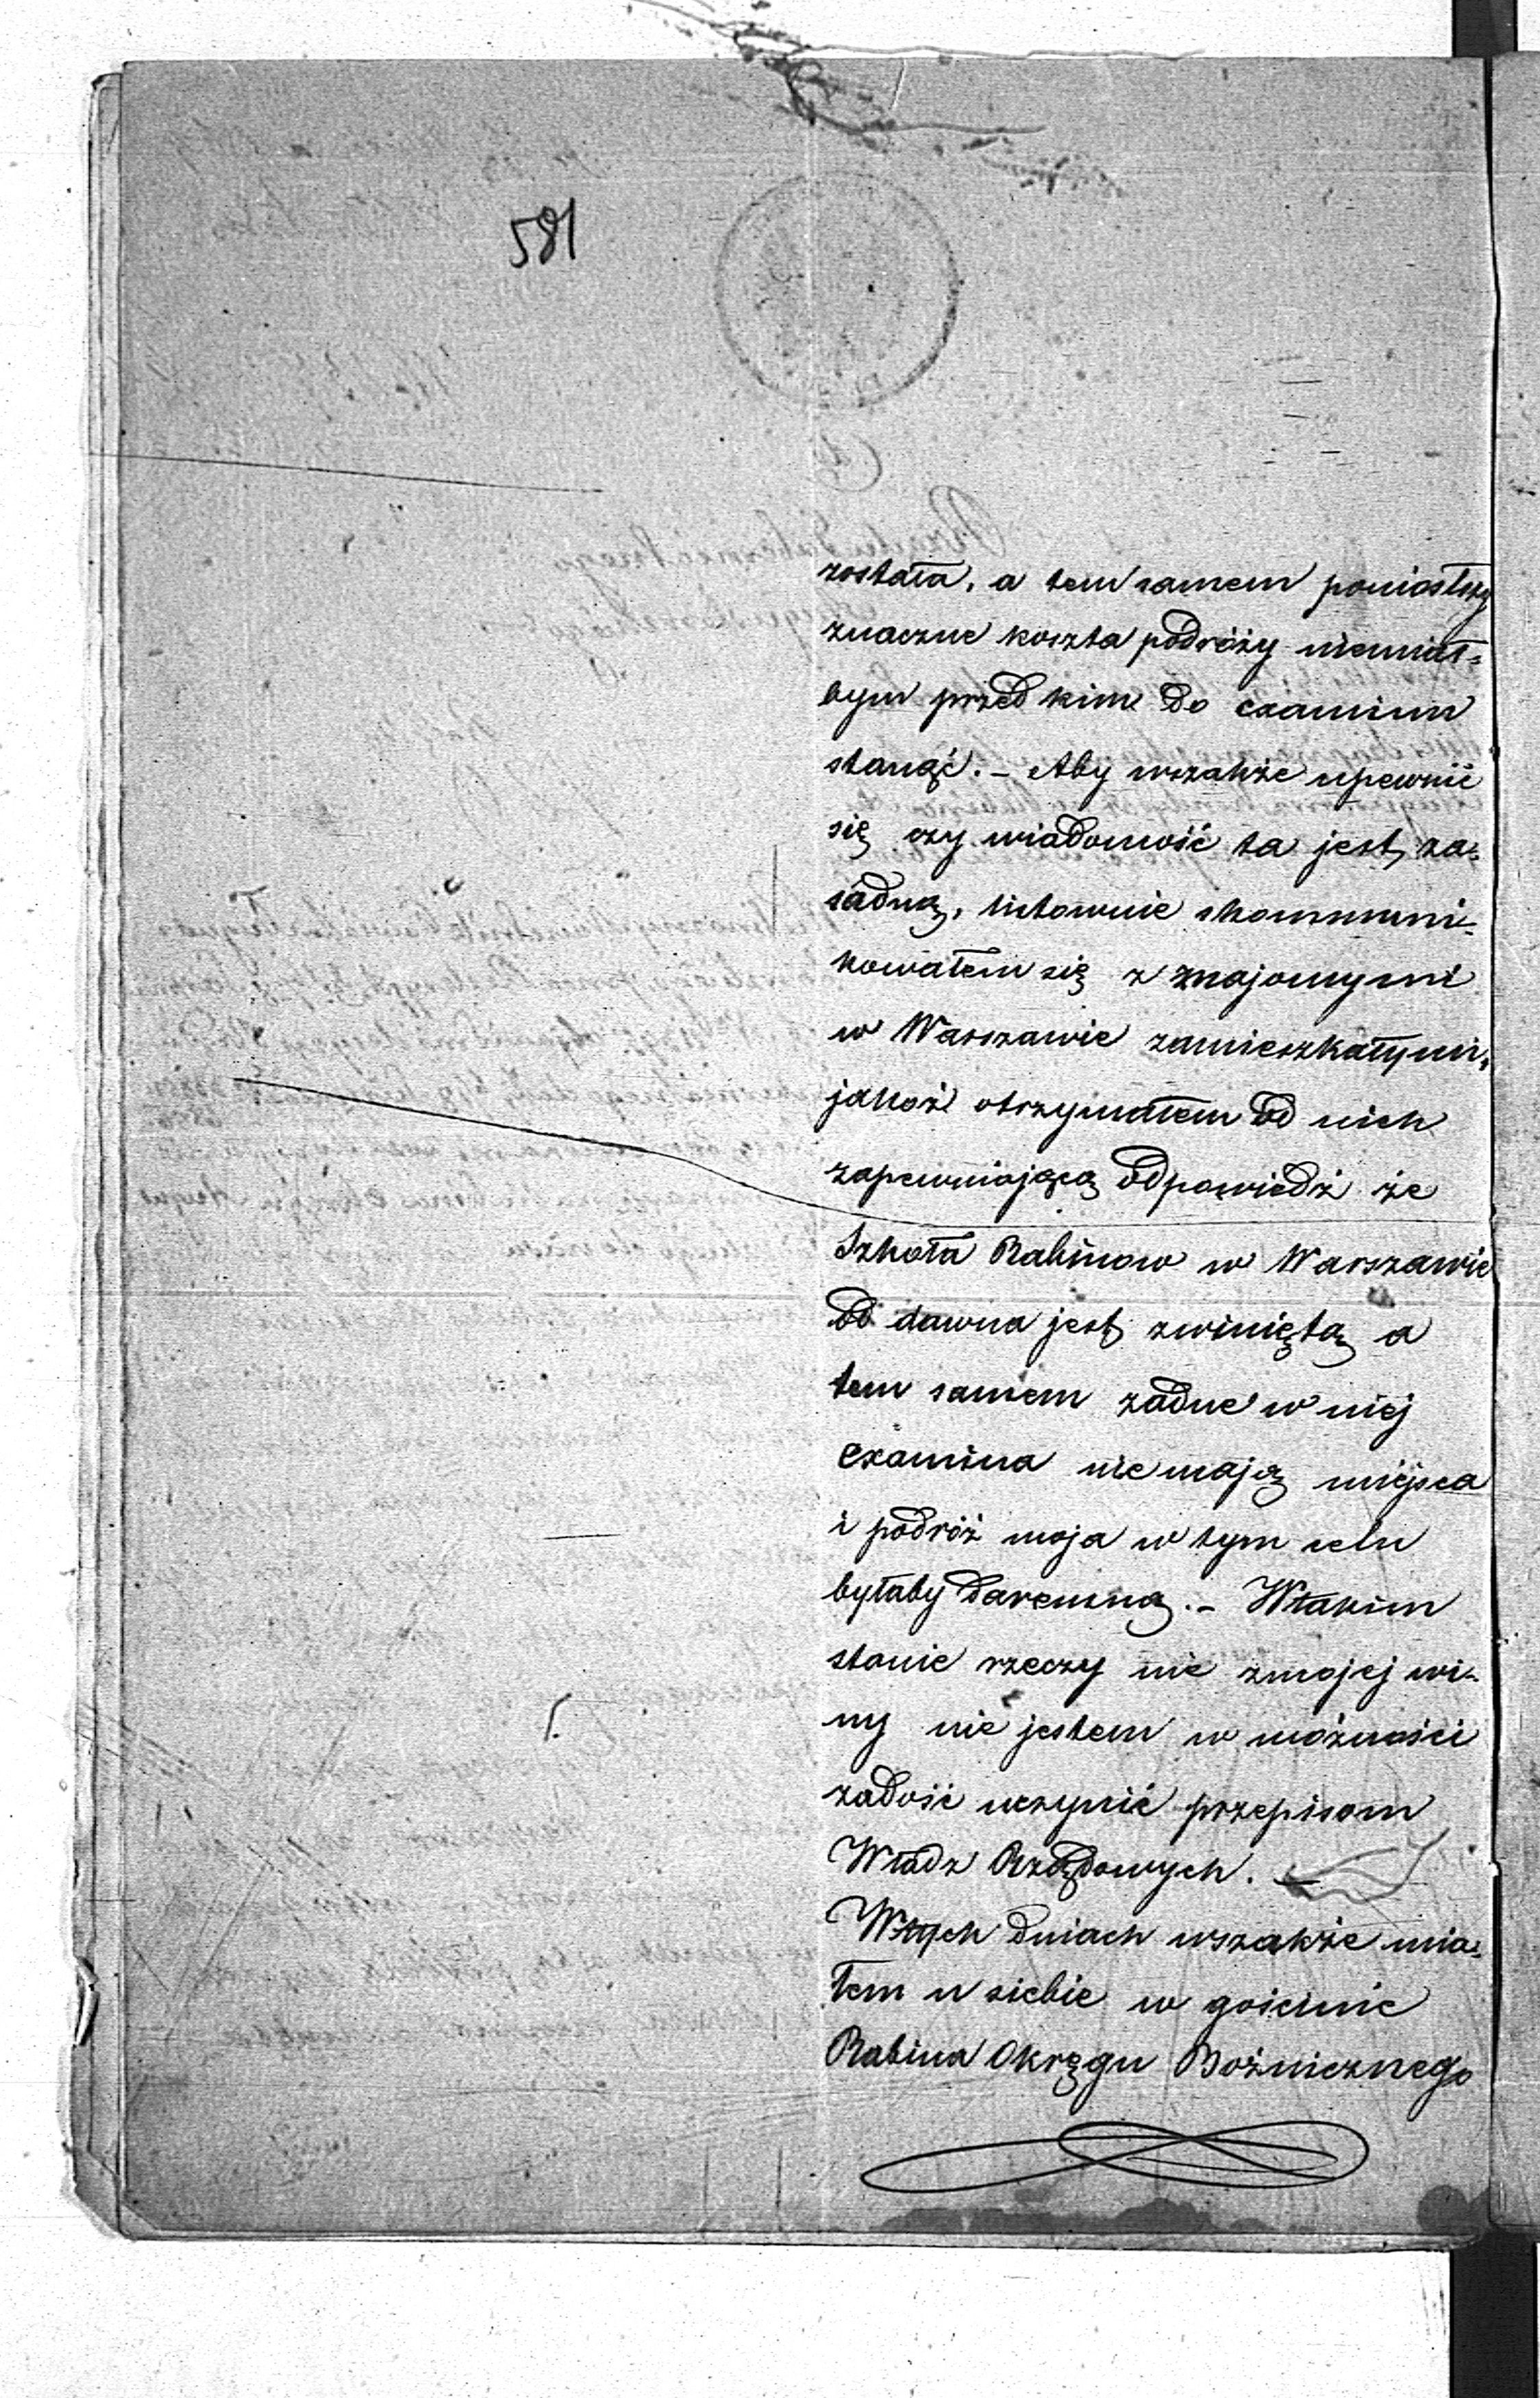 581
została, a tem samem poniosłszy
znaczne koszta podróży niemiał-
bym przed kim do examinu
stanąć. – Aby wszakże upewnić
się czy wiadomość ta jest za-
sadną, listownie skommuni-
kowałem się z znajomymi
w Warszawie zamieszkałymi,
jakoż otrzymałem od nich
zapewniającą odpowiedź że
Szkoła Rabinow w Warszawie
od dawna jest zwiniętą a
tem samem żadne w niej
examina nie mają miejsca
i podróż moja w tym celu
byłaby daremną. – W takim
stanie rzeczy nie z mojej wi-
ny nie jestem w możności
zadość uczynić przepisom
Władz Rządowych. –
W tych dniach wszakże mia-
łem u siebie w gościnie
Rabina Okręgu Bożnicznego